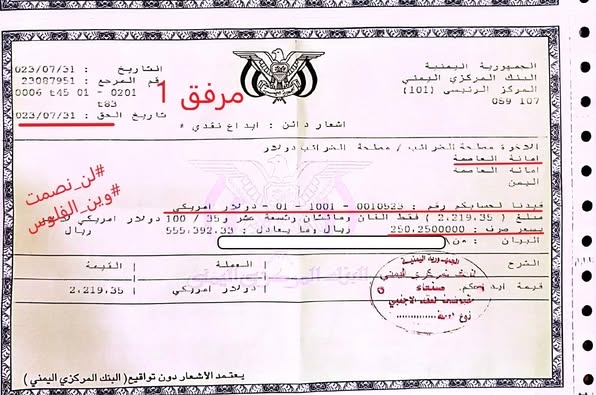 الجمهورية اليمنية
البنك المركزي اليمني
المركز الرئيسي (101)
059 107
التاريخ : 023/07/31
رقم المرجع : 23087951
0006 t45 01 - 0201
t83
تاريخ الحق : 023/07/31
مرفق 1
اشعار دائن : ايداع نقدي *
الاخوة مصلحة الضرائب / مصلحة الضرائب دولار
امانة العاصمة
امانة العاصمة
اليمن
#لن_نصمت
#وين_الفلوس
قيدنا لحسابكم رقم : 0010523 - 1001 - 01 - دولار امريكي
مبلغ ( 2,219.35 ) فقط الفان ومائتان وتسعة عشر و 35 / 100 دولار امريكي
بسعر صرف : 250.2500000 ريال وما يعادل : 555,392.33 ريال
البيان : من
الشرح العملة القيمة
قيمة ايداعكم دولار امريكي 2,219.35
الجمهورية اليمنية
البنك المركزي اليمني
صنعاء
يعتمد الأشعار دون تواقيع ( البنك المركزي اليمني )